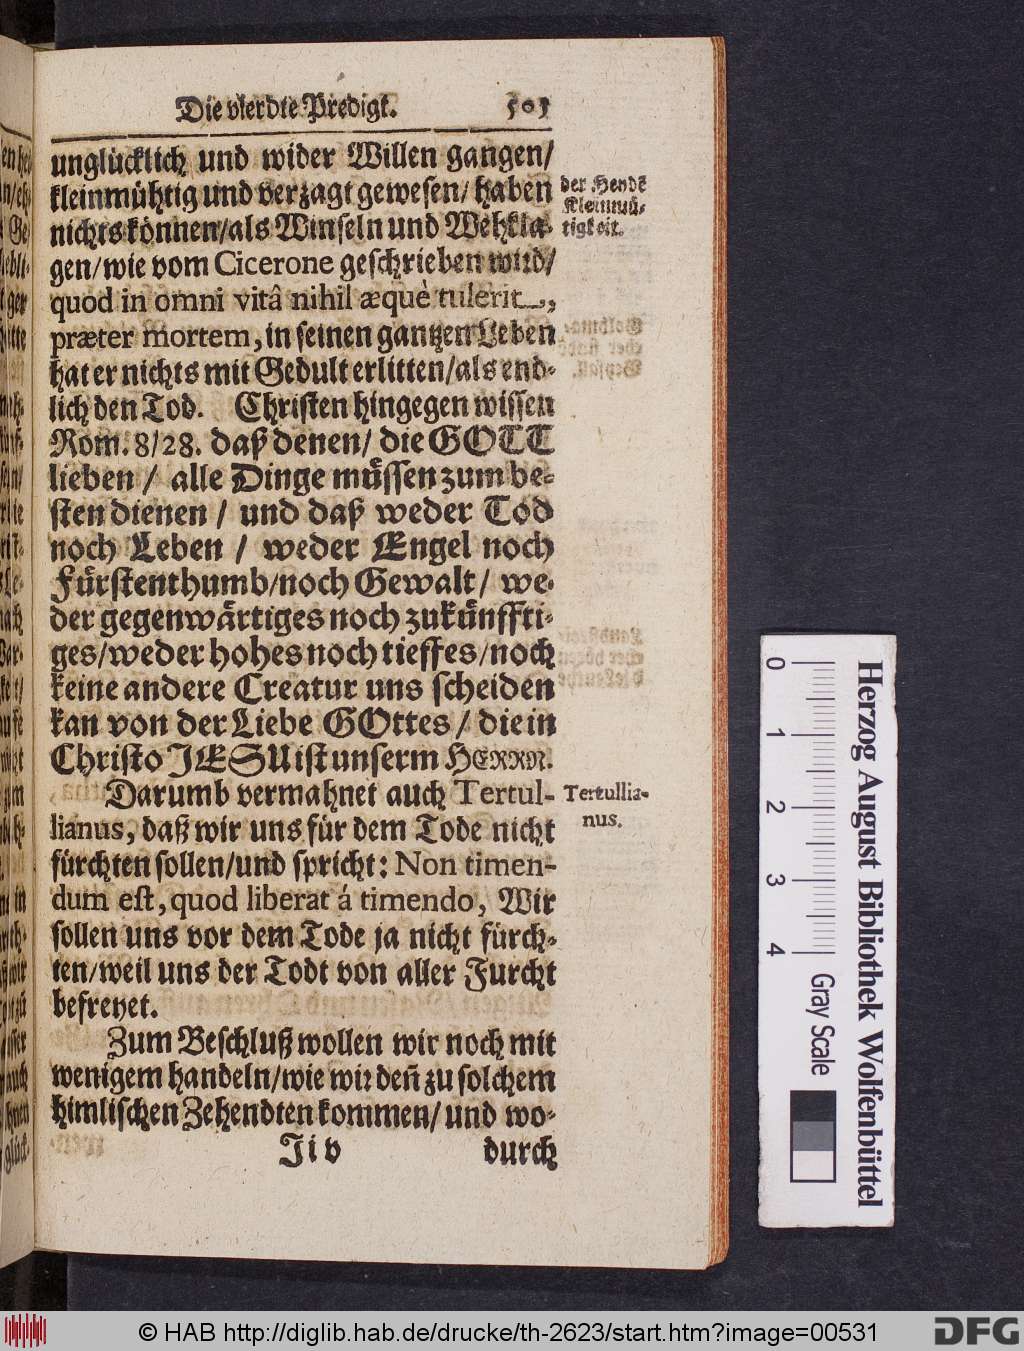 Die vierdte Predigt. 505
unglücklich und wider Willen gangen/
kleinmühtig und verzagt gewesen/ haben
nichts können/als Winseln und Wehkla-
gen/wie vom Cicerone geschrieben wird/
quod in omni vitâ nihil æquè tulerit,
præter mortem, in seinen gantzen Leben
hat er nichts mit Gedult erlitten/als end-
lich den Tod. Christen hingegen wissen
Rom. 8/28. daß denen/ die GOTT
lieben / alle Dinge müssen zum be-
sten dienen / und daß weder Tod
noch Leben / weder Engel noch
Fürstenthumb/noch Gewalt/ we-
der gegenwärtiges noch zukünffti-
ges/weder hohes noch tieffes/noch
keine andere Creatur uns scheiden
kan von der Liebe GOttes / die in
Christo JESU ist unserm HERRN.
Darumb vermahnet auch Tertul-
lianus, daß wir uns für dem Tode nicht
fürchten sollen/und spricht: Non timen-
dum est, quod liberat á timendo, Wir
sollen uns vor dem Tode ja nicht fürch-
ten/weil uns der Todt von aller Furcht
befreyet.
Zum Beschluß wollen wir noch mit
wenigem handeln/wie wir deñ zu solchem
himlischen Zehendten kommen/ und wo-
Ji v durch
der Heydẽ
Kleinmü-
tigkeit.
Tertullia-
nus.
0 1 2 3 4
Herzog August Bibliothek Wolfenbüttel
Gray Scale
© HAB http://diglib.hab.de/drucke/th-2623/start.htm?image=00531
DFG